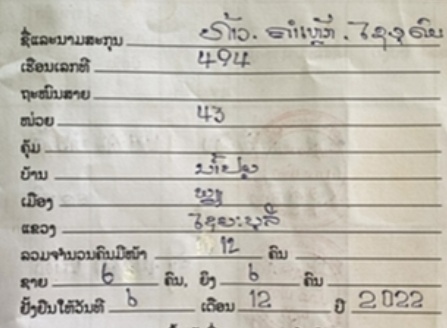 ຊື່ແລະນາມສະກຸນ ທ້າວ. ຄຳເຫຼົາ. ໄຊຈຸຄົນ
ເຮືອນເລກທີ 494
ຖະໜົນສາຍ
ໜ່ວຍ 43
ຄຸ້ມ
ບ້ານ ນ້ຳປຸຍ
ເມືອງ ພຽງ
ແຂວງ ໄຊຍະບູລີ
ລວມຈຳນວນຄົນມີໜ້າ 12 ຄົນ
ຊາຍ 6 ຄົນ, ຍິງ 6 ຄົນ
ຢັ້ງຢືນໃຫ້ວັນທີ 6 ເດືອນ 12 ປີ 2022